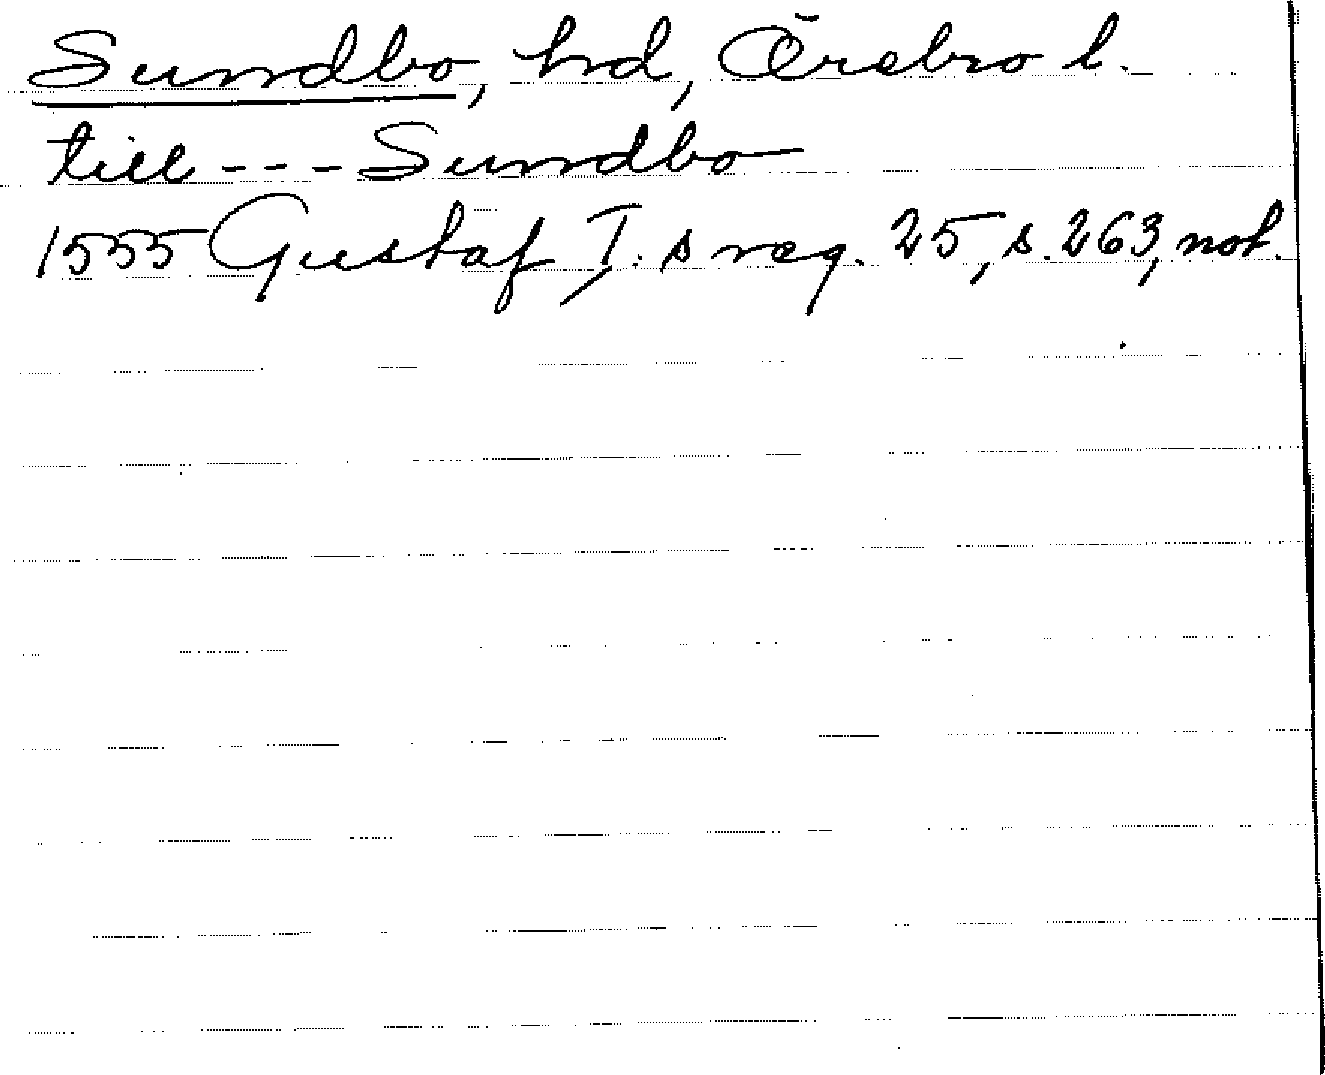 Sundbo, hd, Örebro l.
till --- Sundbo
1555 Gustaf I:s reg. 25, s. 263, not.